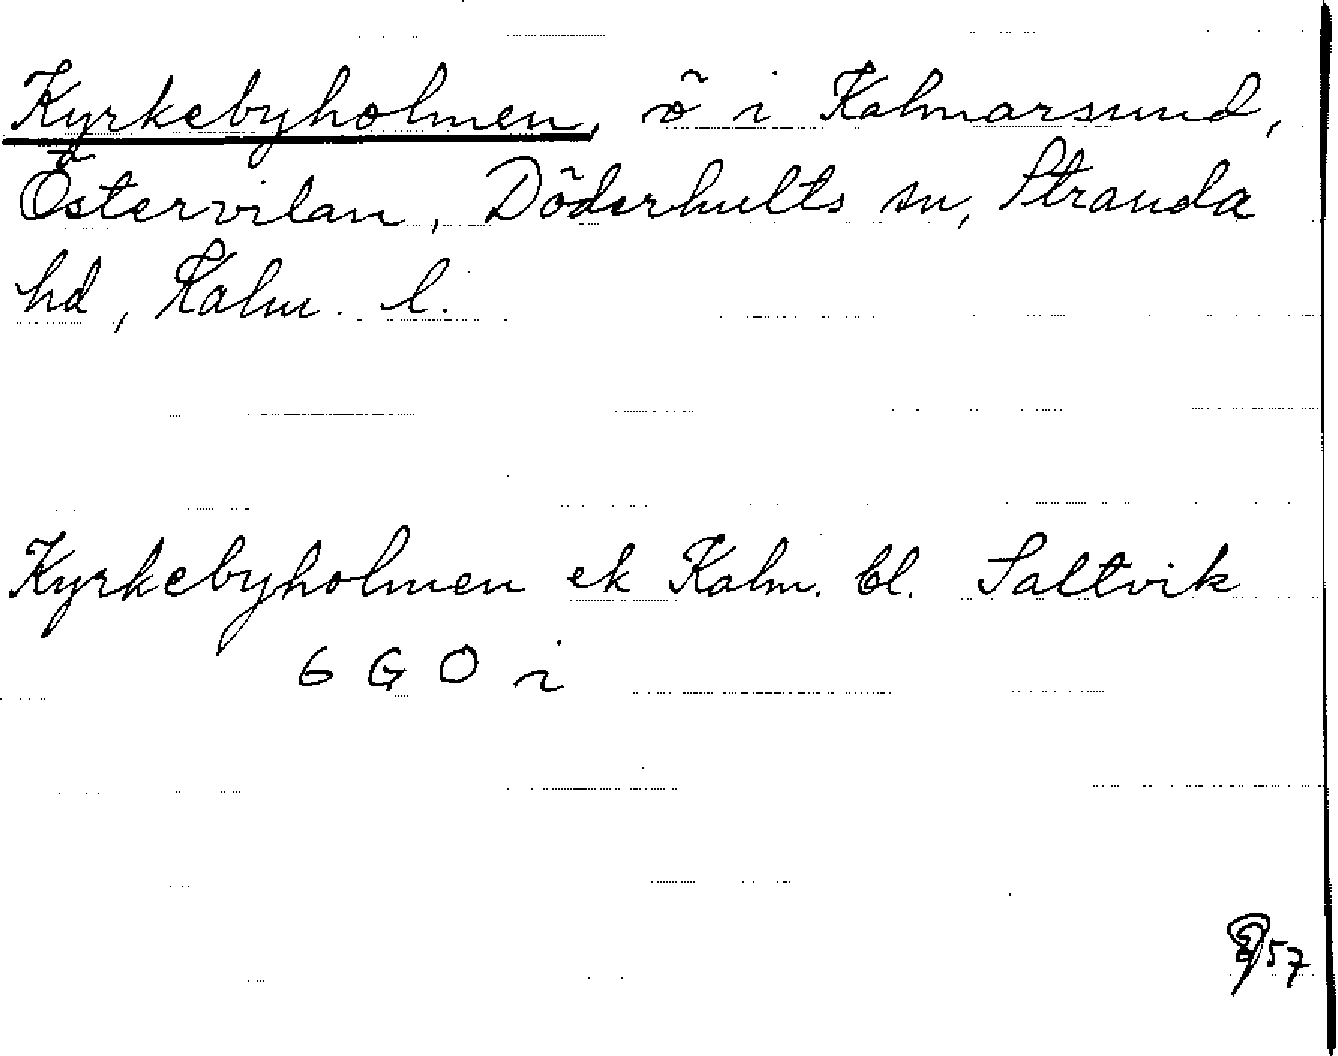 Kyrkebyholmen, ö i Kalmarsund,
Östervilan, Döderhults sn, Stranda
hd, Kalm. l.
Kyrkebyholmen ek Kalm. bl. Saltvik
6 G O i
57